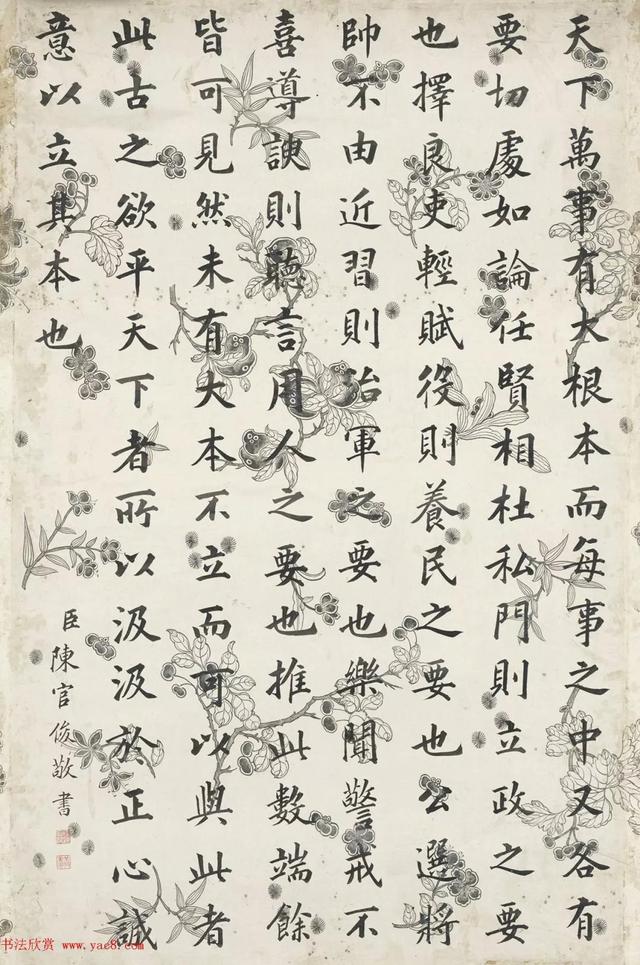 天下萬事有大根本而每事之中又各有
要切處如論任賢相杜私門則立政之要
也擇良吏輕賦役則養民之要也公選將
帥不由近習則治軍之要也樂聞警戒不
喜導諛則聽言用人之要也推此數端餘
皆可見然未有大本不立而可以與此者
此古之欲平天下者所以汲汲於正心誠
意以立其本也
臣陳官俊敬書
书法欣赏 www.yac8.com